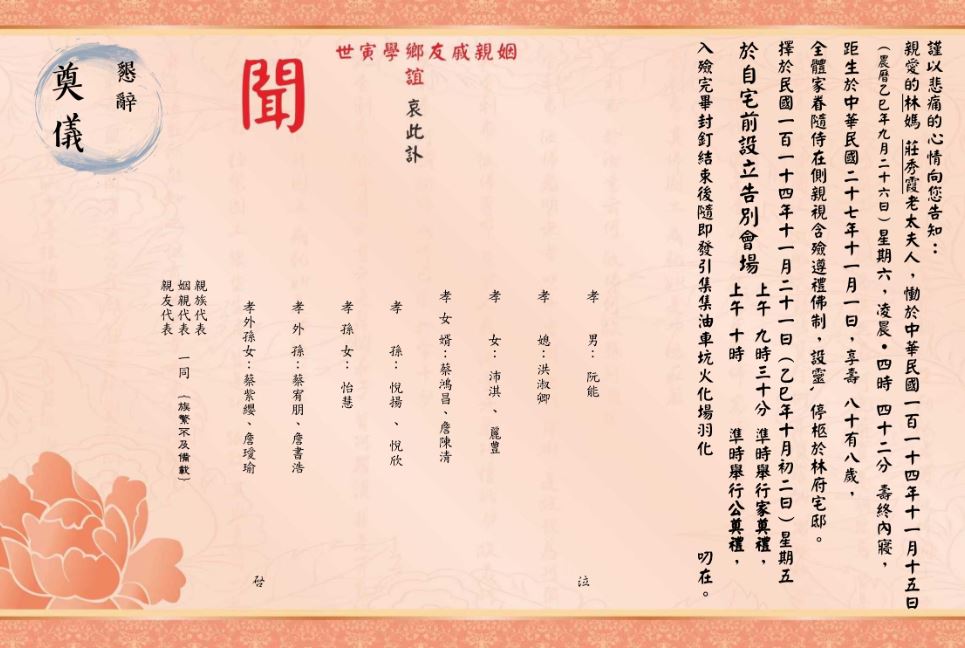 謹以悲痛的心情向您告知：
親愛的林媽 莊秀霞老太夫人，慟於中華民國一百一十四年十一月十五日
（農曆乙巳年九月二十六日）星期六，凌晨・四時 四十二分 壽終內寢，
距生於中華民國二十七年十一月一日，享壽 八十有八歲，
全體家眷隨侍在側親視含殮遵禮佛制，設靈，停柩於林府宅邸。
擇於民國一百一十四年十一月二十一日（乙巳年十月初二日）星期五
於自宅前設立告別會場
上午 九時三十分 準時舉行家奠禮，
上午 十時 準時舉行公奠禮，
入殮完畢封釘結束後隨即發引集集油車坑火化場羽化 叨在。
姻親戚友鄉學寅世
誼 哀此訃
聞
懇辭
奠儀
孝 男：阮能
孝 媳：洪淑卿
孝 女：沛淇、麗豐
孝女婿：蔡鴻昌、詹陳清
孝 孫：悅揚、悅欣
孝孫女：怡慧
孝外孫：蔡宥朋、詹書浩
孝外孫女：蔡紫纓、詹璦瑜
泣
啟
親族代表
姻親代表 一同（族繁不及備載）
親友代表